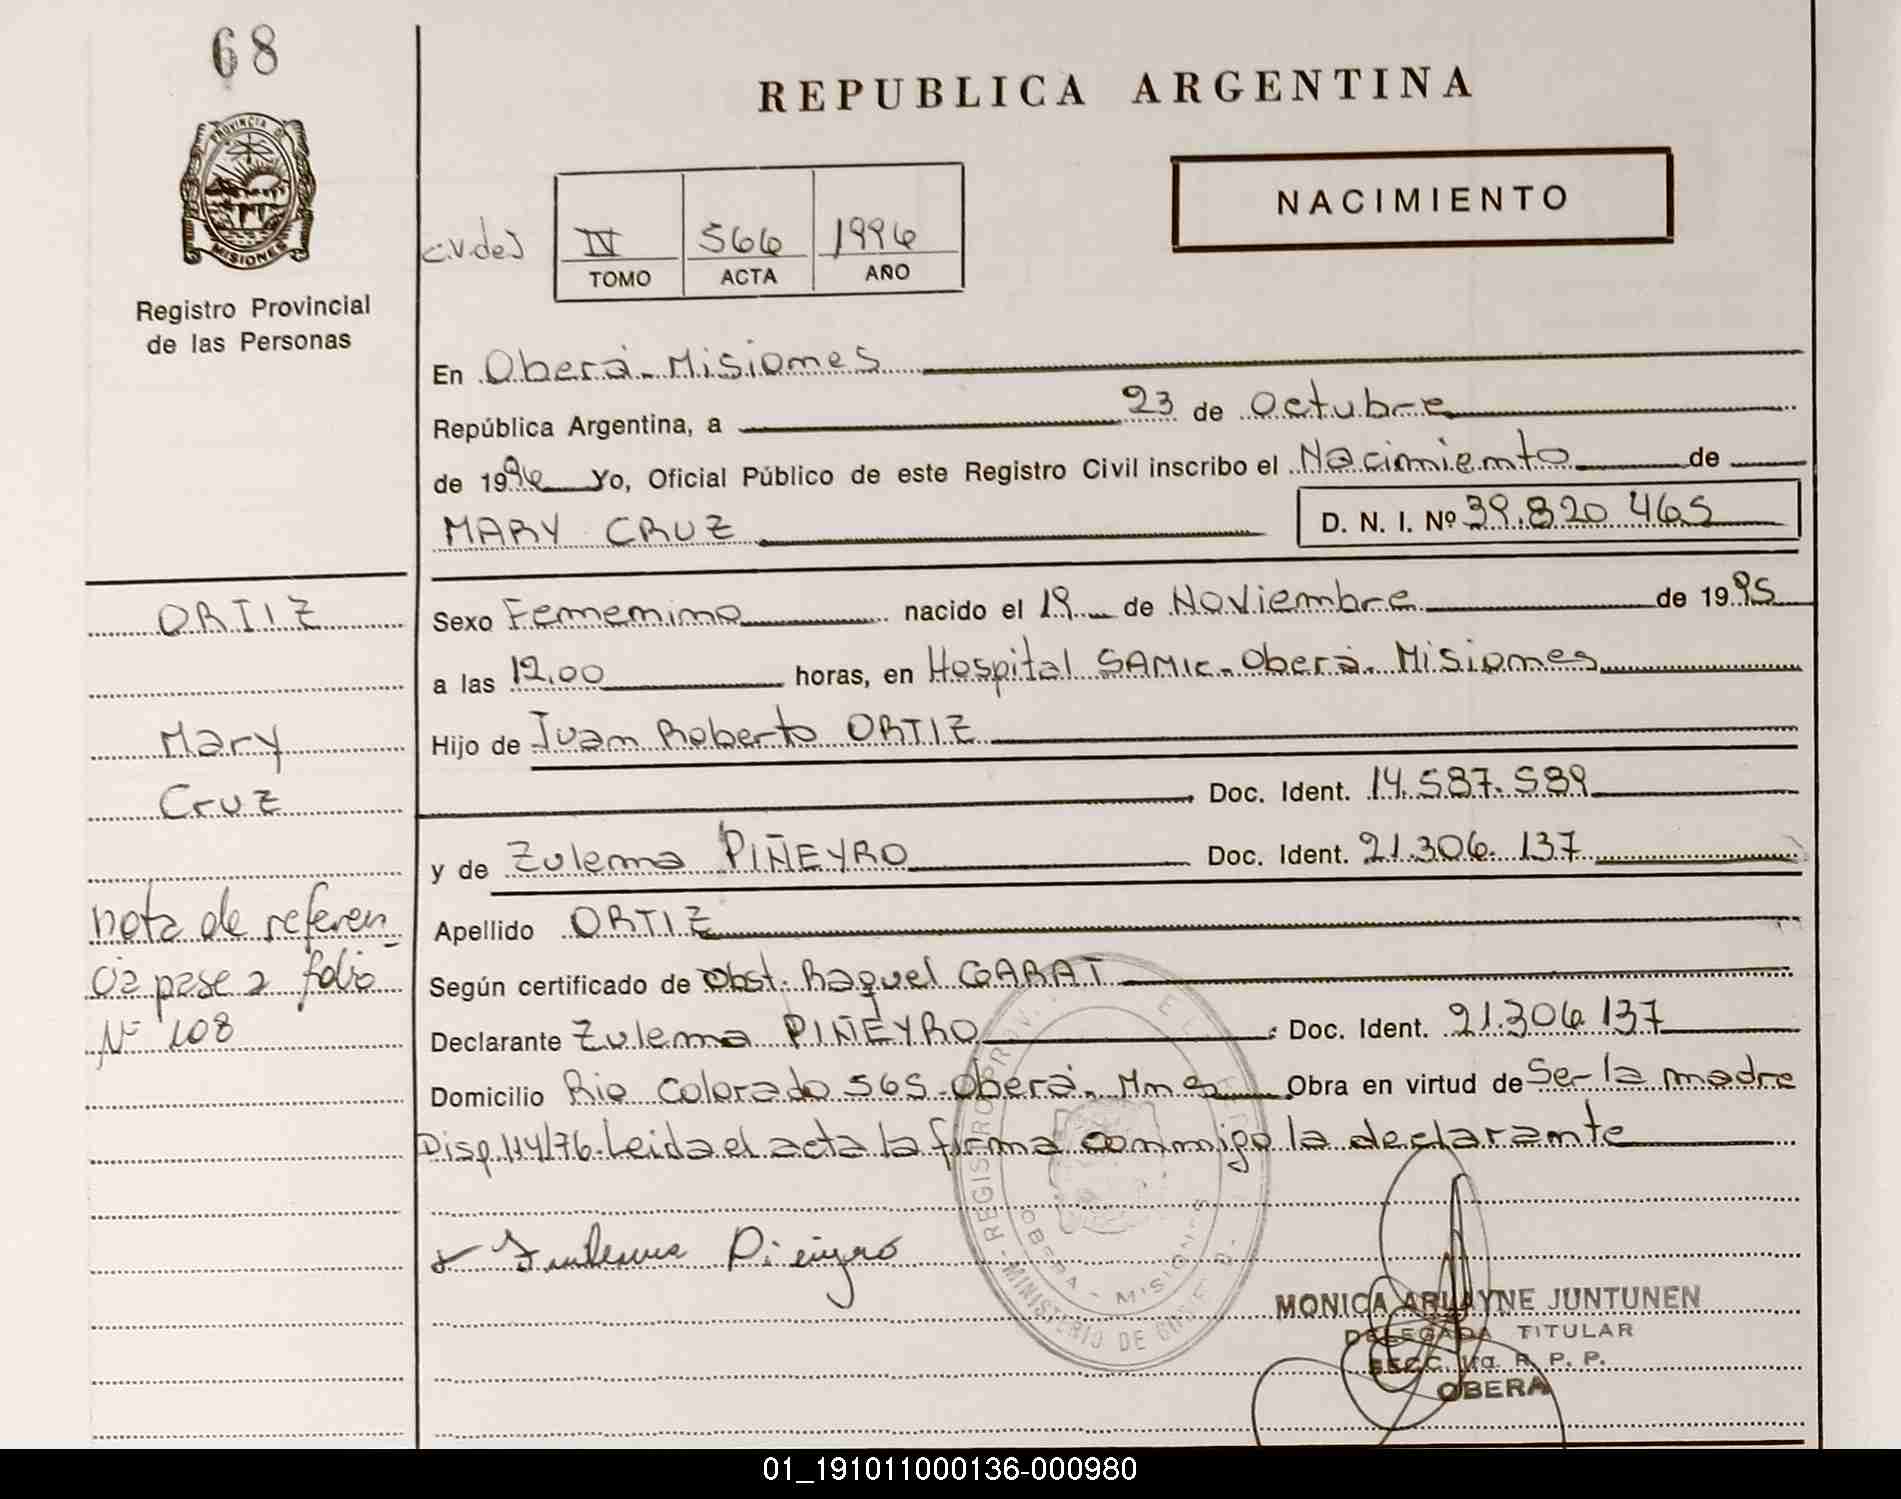 68
PROVINCIA DE
MISIONES
Registro Provincial
de las Personas
REPUBLICA ARGENTINA
NACIMIENTO
IV 566 1996
TOMO ACTA AÑO
En Oberá - Misiones
República Argentina, a 23 de Octubre
de 1996 Yo, Oficial Público de este Registro Civil inscribo el Nacimiento de
MARY CRUZ D. N. I. Nº 39.820.465
Sexo Femenino nacido el 19 de Noviembre de 1995
a las 12,00 horas, en Hospital SAMIC - Oberá - Misiones
Hijo de Juan Roberto ORTIZ
Doc. Ident. 14.587.589
y de Zulema PIÑEYRO Doc. Ident. 21.306.137
Apellido ORTIZ
Según certificado de Obst. Raquel GARAT
Declarante Zulema PIÑEYRO Doc. Ident. 21.306 137
Domicilio Rio Colorado 565 - Oberá, Mnes Obra en virtud de Ser la madre
Disp. 114/76. Leida el acta la firma conmigo la declarante
ORTIZ
Mary
Cruz
nota de referen
cia pase a folio
Nº 108
REGISTRO PROV.
OBERA - MISIONES
MINISTERIO DE
MONICA ARLAYNE JUNTUNEN
DELEGADA TITULAR
SECC. 1ra. R. P. P.
OBERA
01_191011000136-000980